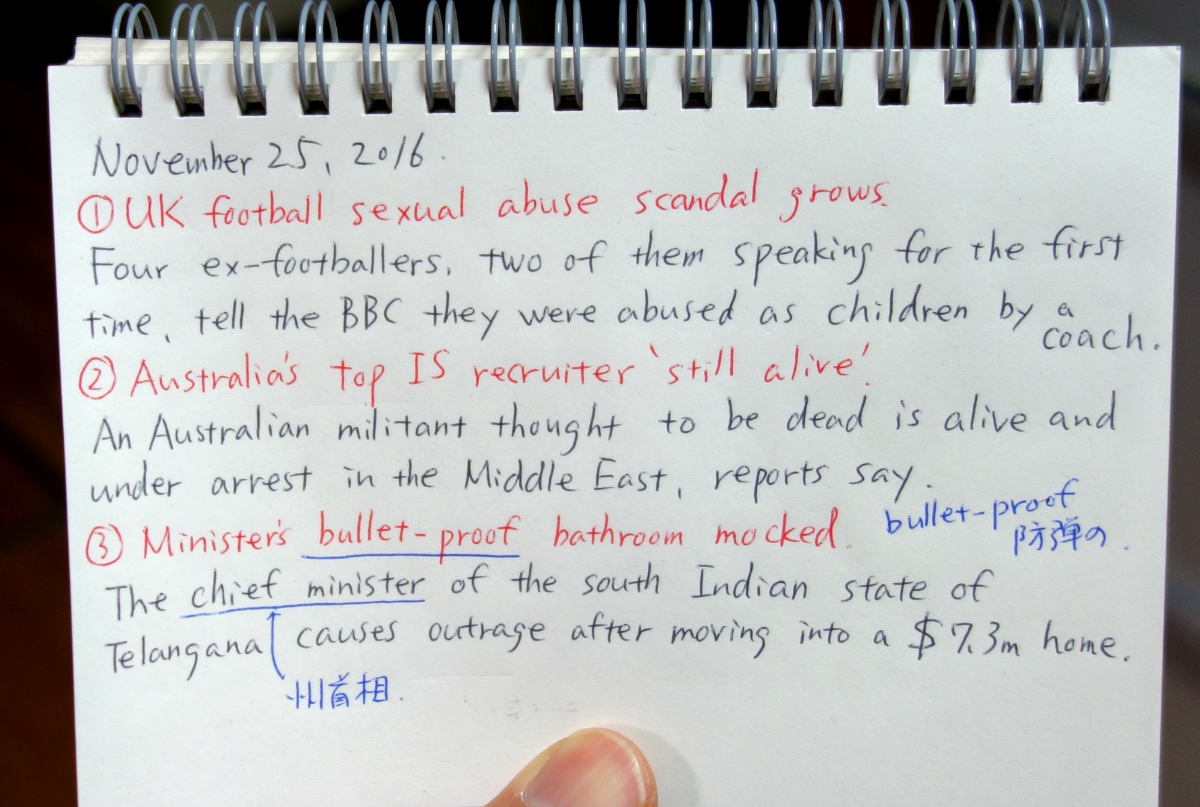 November 25, 2016.
① UK football sexual abuse scandal grows.
Four ex-footballers, two of them speaking for the first
time, tell the BBC they were abused as children by a
coach.
② Australia's top IS recruiter 'still alive'.
An Australian militant thought to be dead is alive and
under arrest in the Middle East, reports say.
③ Minister's bullet-proof bathroom mocked.
bullet-proof
防弾の.
The chief minister of the south Indian state of
Telangana causes outrage after moving into a $7.3m home.
州首相.